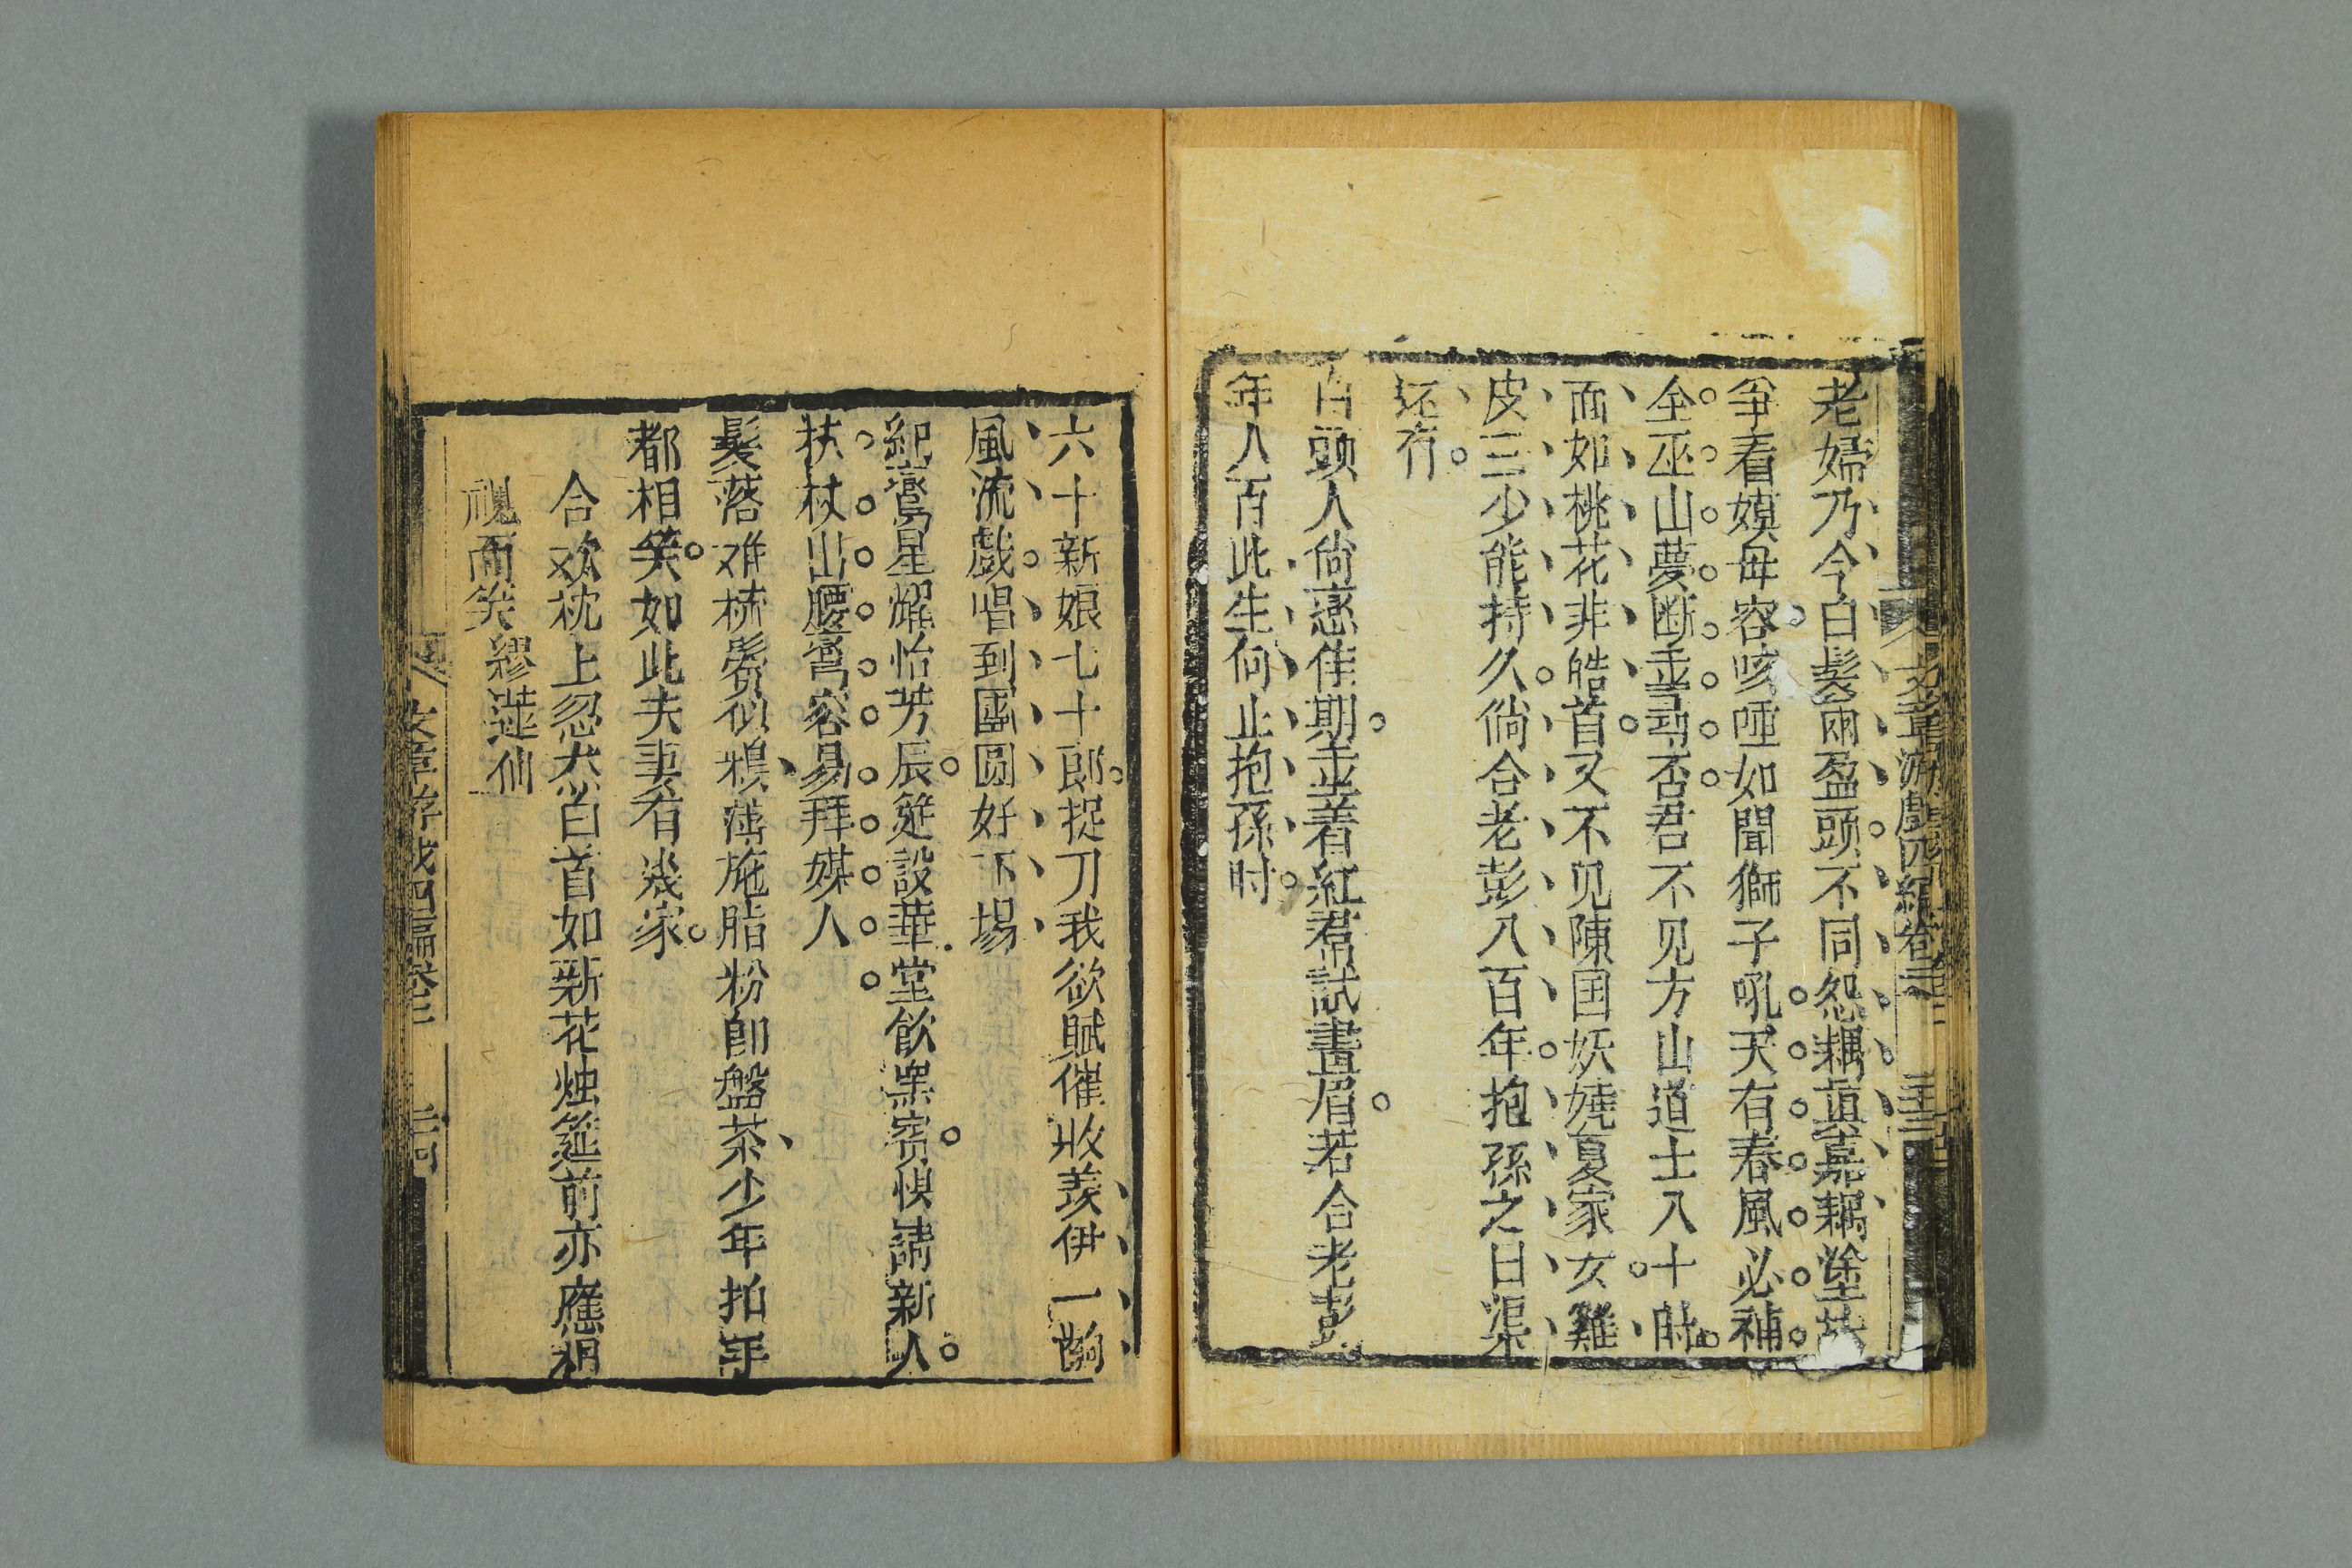 老婦乃今白髮兩盈頭不同怨耦眞嘉耦塗
爭看嫫毋容咳唾如聞獅子吼天有春風必補
全巫山夢断重尋否君不见方山道士八十時
面如桃花非皓首又不见陳国妖嬈夏家女雞
皮三少能持久倘合老彭八百年抱孫之日渠
还有
白頭人尙戀佳期重着紅裙試畫眉若合老彭
年八百此生何止抱孫时
六十新娘七十郎捉刀我欲賦催妝羨伊一齣
風流戲唱到團圆好下場
紀鸞星耀怡芳辰筵設華堂飲衆賓慢請新人
扶杖出腰彎容易拜媒人
髮落难梳鬓似鴉薄施脂粉卽盤茶少年拍手
都相笑如此夫妻有幾家
合欢枕上忽大白首如新花烛筵前亦應相
視而笑 繆蓮仙
文章游戲四編卷三 三十三
文章游戲四編卷三 三十四